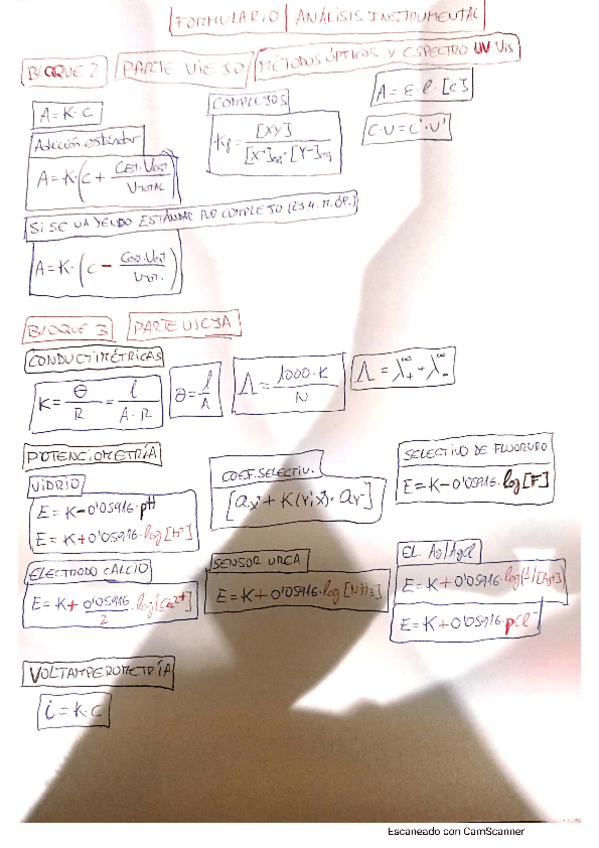 FORMULARIO | ANÁLISIS INSTRUMENTAL
BLOQUE 2 PARTE VIEJO MÉTODOS ÓPTICOS Y ESPECTRO UV Vis
A = K · C
COMPLEJOS
A = ε · l · [C]
Kf = [XY] / [X⁺]eq · [Y⁻]eq
C · V = C' · V'
Adición estándar
A = K · (C + CEST · VEST / VTOTAL)
SI SE VA YENDO ESTÁNDAR POR COMPLEJO
A = K · (C − CEST · VEST / VTOT.)
BLOQUE 3 PARTE VIEJA
CONDUCTIMÉTRICAS
K = Θ / R = l / A · R
Θ = l / A
Λ = 1000 · K / N
Λ = λ₊^∞ + λ₋^∞
POTENCIOMETRÍA
VIDRIO
E = K − 0'05916 · pH
E = K + 0'05916 · log [H⁺]
COEF. SELECTIV.
[ax + K(Y,X) · aY]
SELECTIVO DE FLUORURO
E = K − 0'05916 · log [F⁻]
ELECTRODO CALCIO
E = K + 0'05916 / 2 · log [Ca²⁺]
SENSOR UREA
E = K + 0'05916 · log [NH₃]
EL. Ag/AgCl
E = K + 0'05916 · pCl⁻
VOLTAMPEROMETRÍA
i = K · C
Escaneado con CamScanner